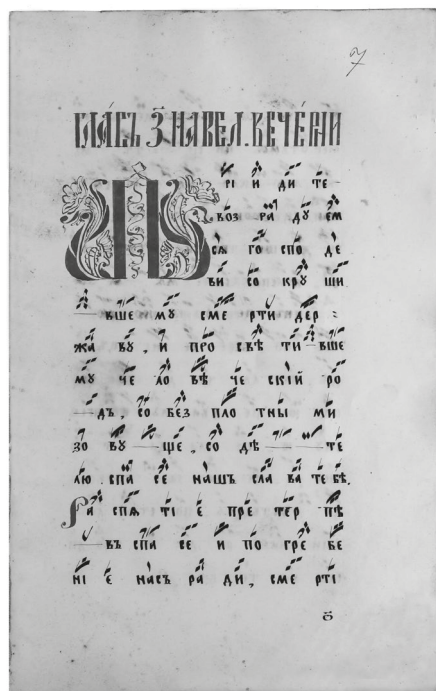 7
гла́съ з҃ на вел. вече́рни
Прі и ди те
воз ра ду ем
сѧ го спо де
ви со крꙋ ши
вше мꙋ сме рти дер
жа вꙋ, и про свѣ ти вше
мꙋ че ло вѣ че скїй ро
дъ, со без пло тны ми
зо вꙋ ще, со дѣ те
лю спа се нашъ сла ва те бѣ.
Ра спѧ ті е пре тер пѣ
въ спа се и по гре бе
ні е насъ ра ди, сме рті